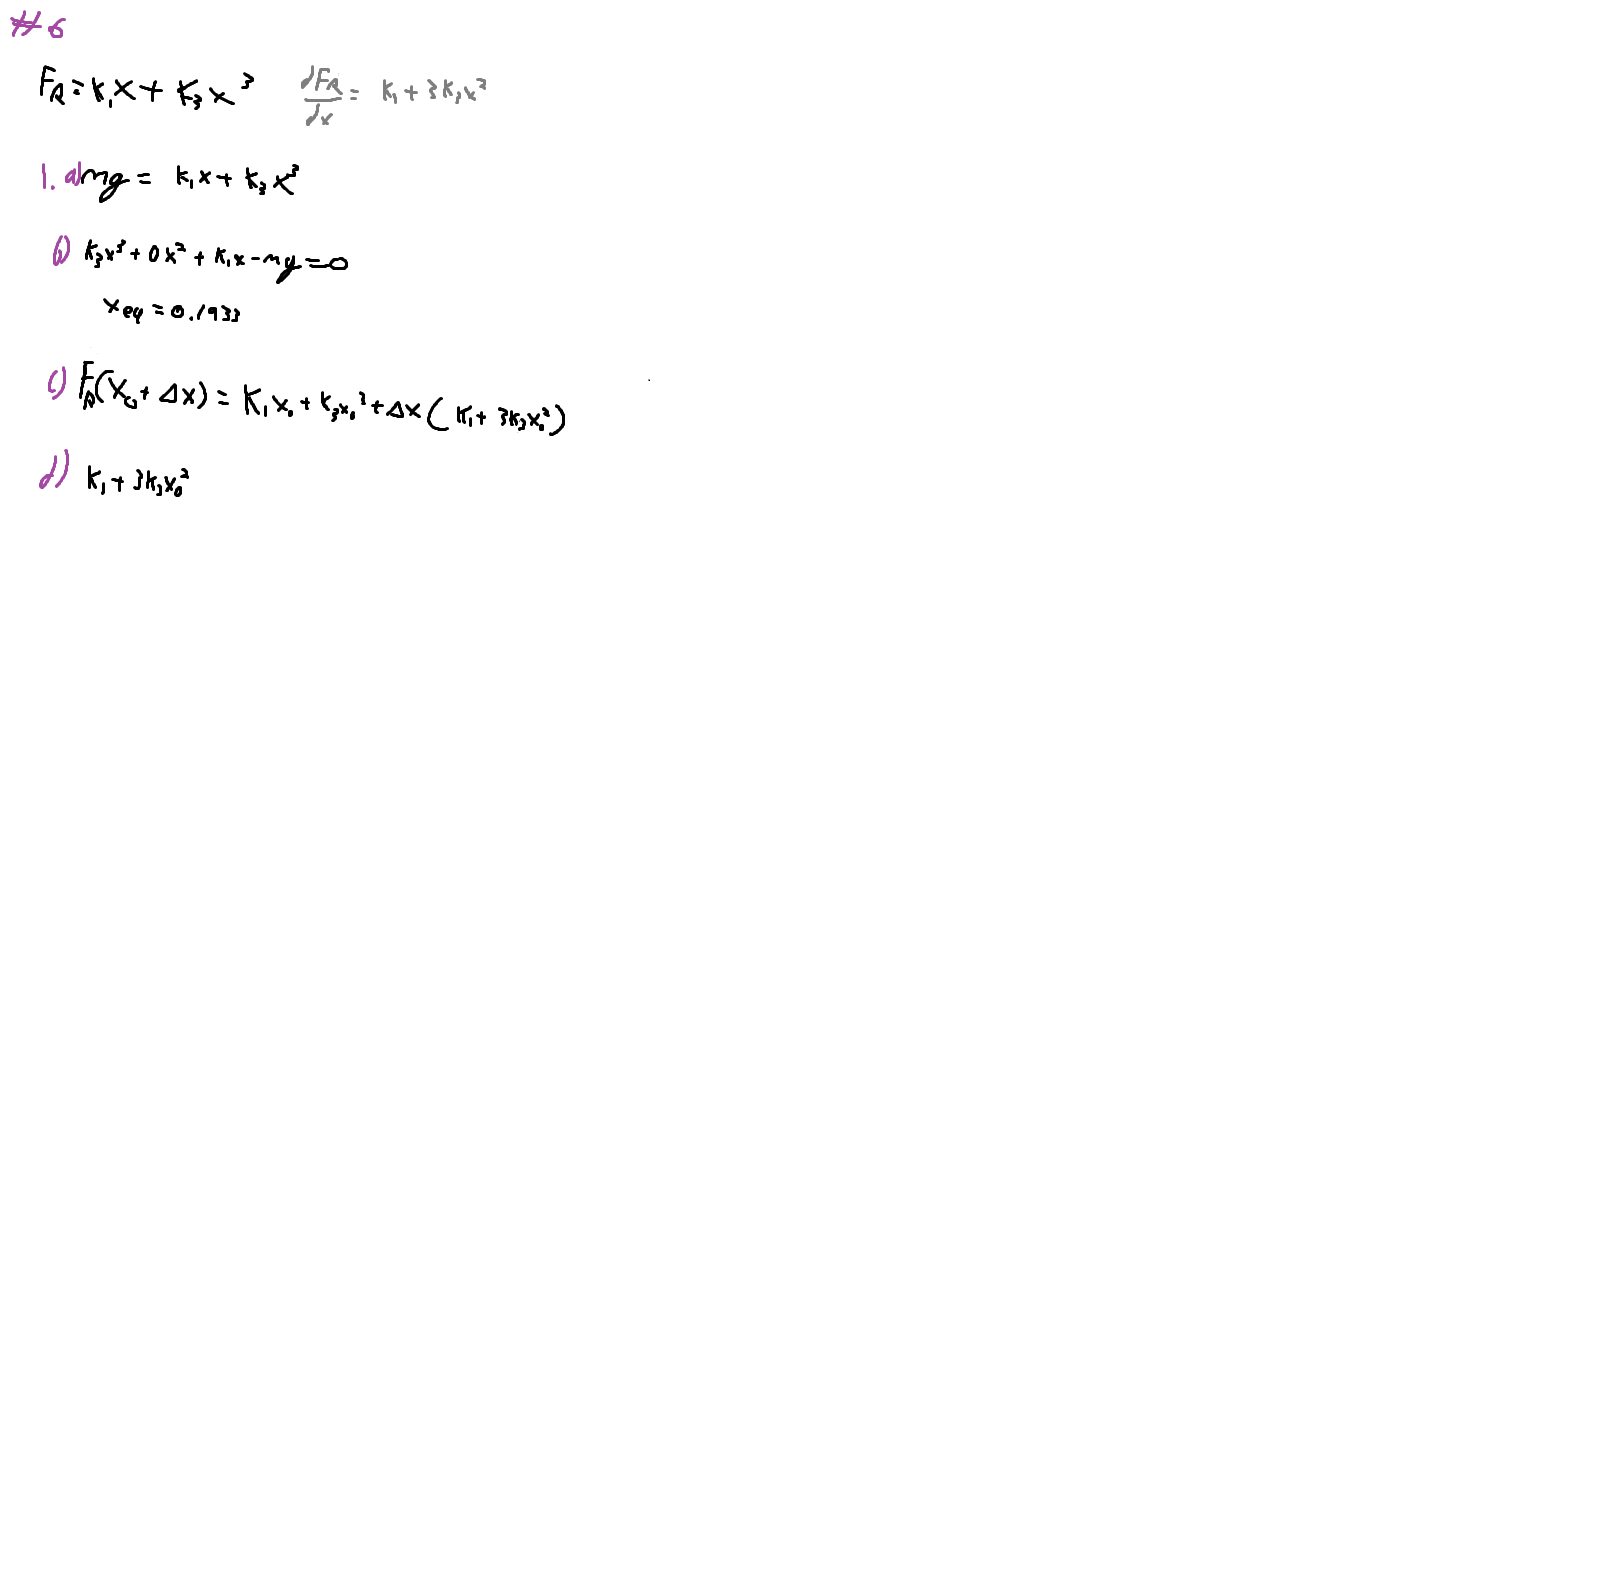 #6
F_R = k₁x + k₃x³   dF_R/dx = k₁ + 3k₃x²
1. a) mg = k₁x + k₃x³
b) k₃x³ + 0x² + k₁x - mg = 0
x_eq = 0.1933
c) F_R(x₀ + Δx) = k₁x₀ + k₃x₀³ + Δx(k₁ + 3k₃x₀²)
d) k₁ + 3k₃x₀²